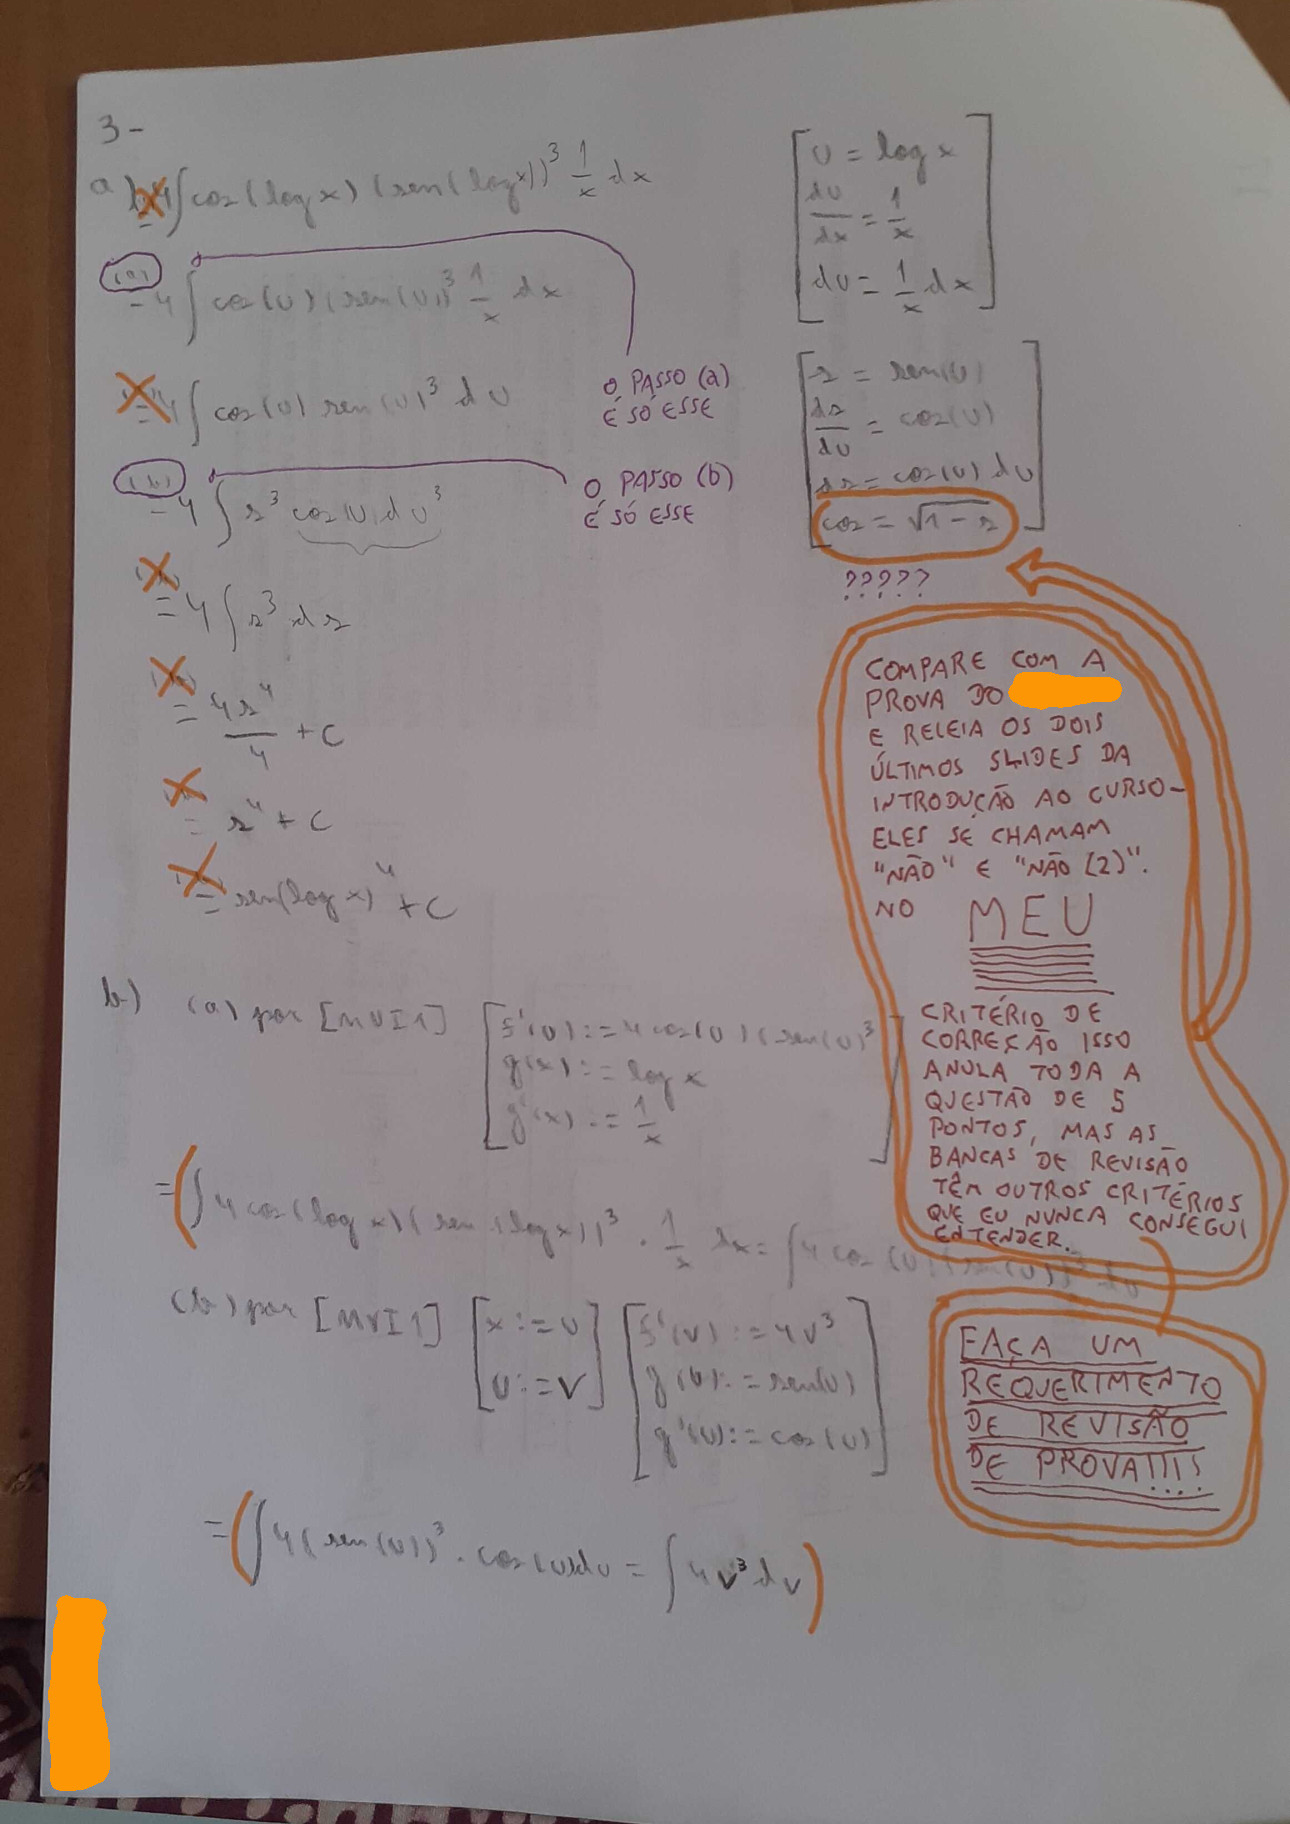 3 -
a) = 4∫ cos (log x) (sen (log x))³ 1/x dx
(a)
= 4 ∫ cos (u) (sen (u))³ 1/x dx
= 4 ∫ cos (u) sen (u)³ du
O PASSO (a)
É SÓ ESSE
(b)
= 4 ∫ s³ cos (u) du³
O PASSO (b)
É SÓ ESSE
= 4 ∫ s³ ds
= 4s⁴/4 + C
= s⁴ + C
= sen(log x)⁴ + C
[u = log x
du/dx = 1/x
du = 1/x dx]
[s = sen(u)
ds/du = cos(u)
ds = cos(u) du
cos = √1 - s]
?????
COMPARE COM A
PROVA DO
E RELEIA OS DOIS
ÚLTIMOS SLIDES DA
INTRODUÇÃO AO CURSO -
ELES SE CHAMAM
"NÃO" E "NÃO (2)".
NO MEU
CRITÉRIO DE
CORREÇÃO ISSO
ANULA TODA A
QUESTÃO DE 5
PONTOS, MAS AS
BANCAS DE REVISÃO
TÊM OUTROS CRITÉRIOS
QUE EU NUNCA CONSEGUI
ENTENDER.
FAÇA UM
REQUERIMENTO
DE REVISÃO
DE PROVA!!!!
b) (a) por [MVI1] [f'(u) := 4 cos(u) (sen(u)³
g(x) := log x
g'(x) := 1/x]
= (∫ 4 cos (log x) (sen (log x))³ . 1/x dx = ∫ 4 cos (u) (sen(u))³ du
(b) por [MVI1] [x := u
u := v] [f'(v) := 4v³
g(u) := sen(u)
g'(u) := cos(u)]
= (∫ 4 (sen (u))³ . cos (u) du = ∫ 4v³ dv)